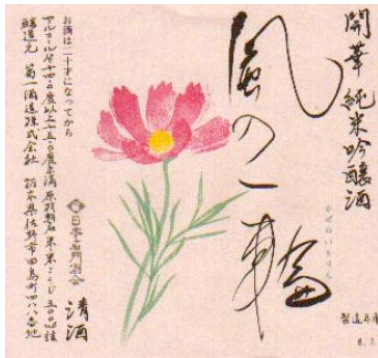 開華 純米吟醸酒
風の一輪
かぜのいちりん
製造年月
清酒
日本名門酒会
お酒は二十才になってから
アルコール分十四・〇度以上十五・〇度未満 原材料名 米・米こうじ 五〇〇ml詰
醸造元 第一酒造株式会社 栃木県佐野市田島町四八八番地